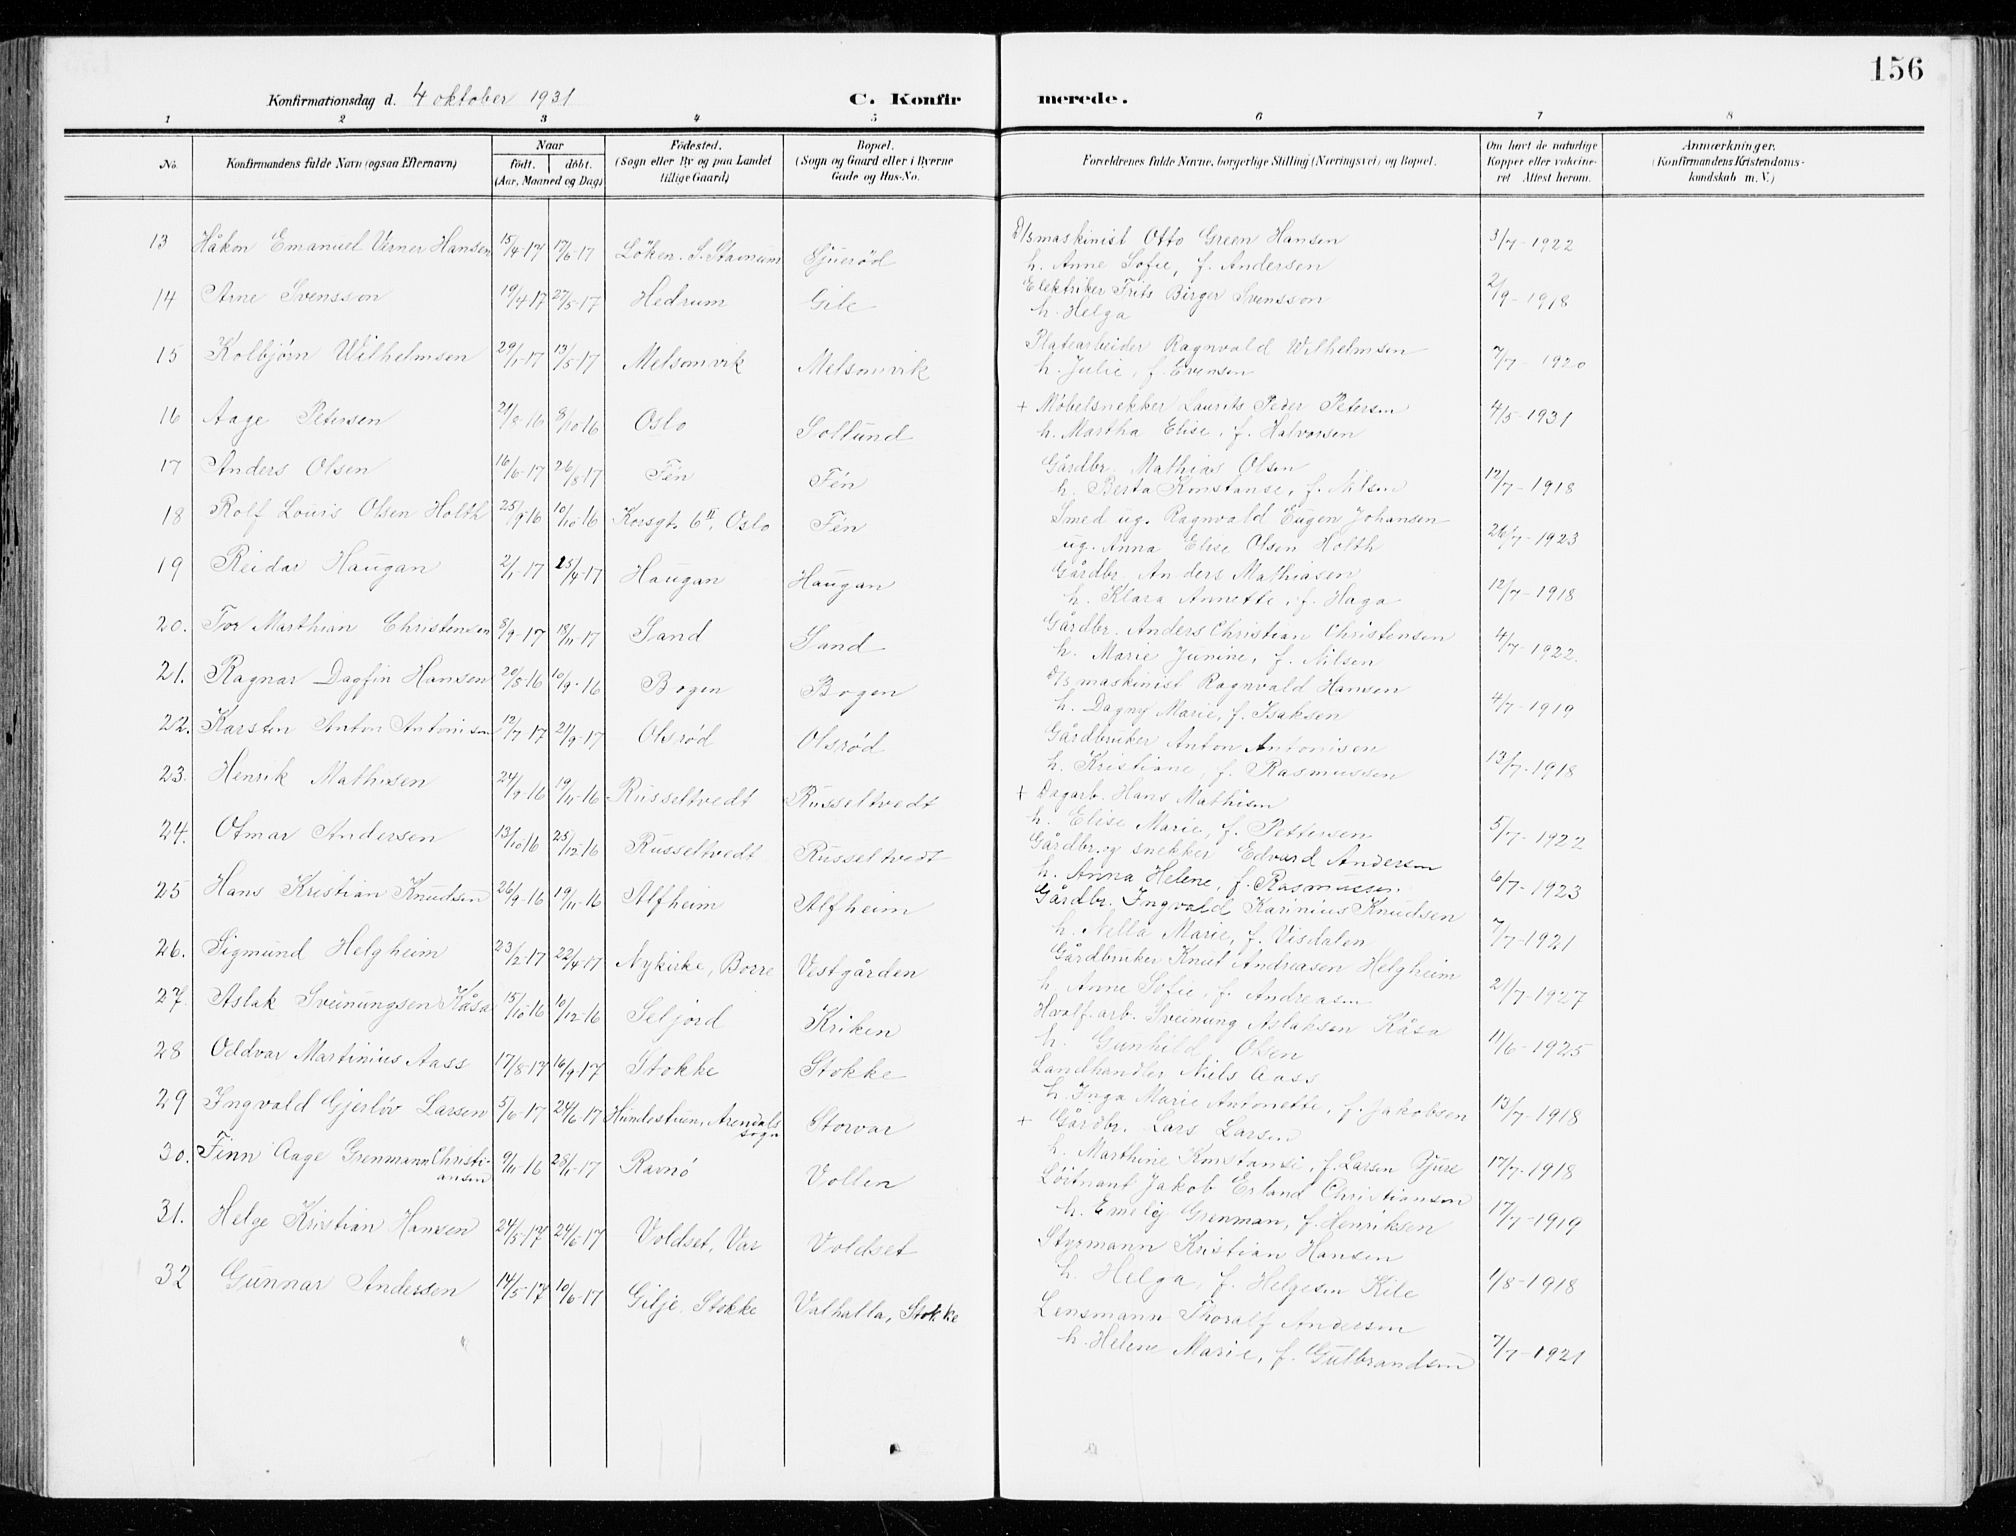 156
Konfirmationsdag d. 4 oktober 1931 C. Konfir merede.
1 2 3 4 5 6 7 8
No. Konfirmandens fulde Navn (ogsaa Efternavn) Naar født. døbt. (Aar, Maaned og Dag) Fødested. (Sogn eller By og paa Landet tillige Gaard) Bopæl. (Sogn og Gaard eller i Byerne Gade og Hus-No. Forældrenes fulde Navne, borgerlige Stilling (Næringsvei) og Bopæl. Om havt de naturlige Kopper eller vakcineret Attest herom. Anmærkninger. (Konfirmandens Kristendomskundskab m. V.)
13 Håkon Emanuel Verner Hansen 15/4-17 17/6-17 Löken. S. Stavnum Gjueröd D/S maskinist Otto Green Hansen 3/7-1922
h. Anne Sofie, f. Andersen
14 Arne Svensson 19/4-17 27/5-17 Hedrum Gile Elektriker Frits Birger Svensson 2/9-1918
h. Helga
15 Kolbjørn Wilhelmsen 29/1-17 13/5-17 Melsomvik Melsomvik Platearbeider Ragnvald Wilhelmsen 7/7-1920
h. Julie, f. Evensen
16 Aage Petersen 21/8-16 8/10-16 Oslo Sollund + Møbelsnekker Laurits Peder Petersen 4/5-1931
h. Martha Elise, f. Halvorsen
17 Anders Olsen 16/6-17 26/8-17 Fén Fén Gårdbr. Mathias Olsen 12/7-1918
h. Berta Konstanse, f. Nilsen
18 Rolf Louis Olsen Holth 25/9-16 10/10-16 Korsgt. 6 II, Oslo Fén Smed ug. Ragnvald Eugen Johansen 26/7-1923
ug. Anna Elise Olsen Holth
19 Reidar Haugan 2/1-17 15/4-17 Haugan Haugan Gårdbr. Anders Mathiasen 12/7-1918
h. Klara Annette, f. Haga
20. Tor Marthian Christensen 8/9-17 18/11-17 Sand Sand Gårdbr. Anders Christian Christensen 4/7-1922.
h. Marie Junine, f. Nilsen
21. Ragnar Dagfin Hansen 20/8-16 10/9-16 Bogen Bogen D/S maskinist Ragnvald Hansen 4/7-1919
h. Dagny Marie, f. Isaksen
22. Karsten Anton Antonisen 12/7-17 21/9-17 Olsrød Olsrød Gårdbruker Anton Antonisen 13/7-1918
h. Kristiane, f. Rasmussen
23. Henrik Mathisen 24/9-16 19/11-16 Russeltvedt Russeltvedt + Dagarb. Hans Mathisen 5/7-1922
h. Elise Marie, f. Pettersen
24. Otmar Andersen 13/10-16 25/12-16 Russeltvedt Russeltvedt Gårdbr. og snekker Edvard Andersen 6/7-1923
h. Anna Helene, f. Rasmussen.
25 Hans Kristian Knudsen 26/9-16 19/11-16 Alfheim Alfheim Gårdbr. Ingvald Karinius Knudsen 7/7-1921
h. Nella Marie, f. Visdalen
26. Sigmund Helgheim 23/2-17 22/4-17 Nykirke, Borre Vestgården Gårdbruker Knut Andreasen Helgheim 21/7-1927
h. Anne Sofie, f. Andreasen
27. Aslak Sveinungsen Kåsa 15/10-16 10/12-16 Seljord Kriken Hvalf. arb. Sveinung Aslaksen Kåsa 11/6-1925
h. Gunhild Olsen
28 Oddvar Martinius Aass 17/8-17 16/9-17 Stokke Stokke Landhandler Niels Aass 13/7-1918
h. Inga Marie Antonette, f. Jakobsen
29 Ingvald Gjerløv Larsen 5/6-17 24/6-17 Hundestuen, Arendals sogn Storvar + Gårdbr. Lars Larsen 17/7-1918
h. Marthine Konstansi, f. Larsen Gjure
30. Finn Aage Grenmann Christiansen 9/11-16 28/1-17 Ravnø Vollen Løitnant Jakob Erland Christiansen 17/7-1919
h. Emely Grenman, f. Henriksen
31. Helge Kristian Hansen 24/5-17 24/6-17 Voldset, Var Voldset Styrmann Kristian Hansen 1/8-1918
h. Helga, f. Helgesen Kile
32 Gunnar Andersen 14/5-17 10/6-17 Gilje, Stokke Valhalla, Stokke Lensmann Thoralf Andersen 7/7-1921
h. Helene Marie, f. Gulbrandsen